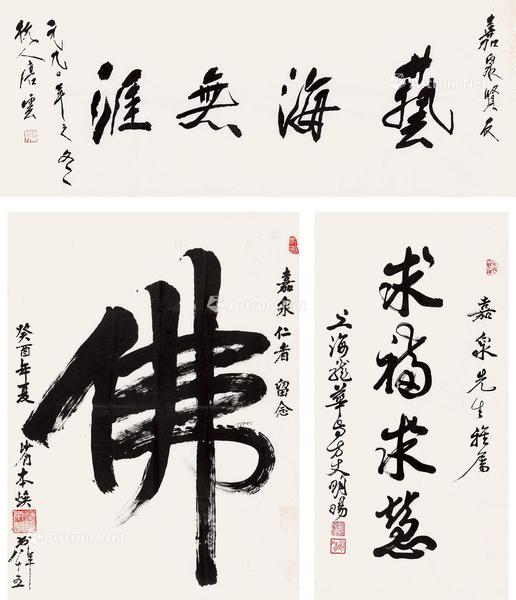 嘉泉賢友
藝海無涯
九〇年之冬
杭人唐雲
嘉泉仁者 留念
佛
癸酉年夏
本煥
嘉泉先生雅属
求福求慧
上海龍華寺方丈明暘
Artron.Net
Artron.Net
Artron.Net